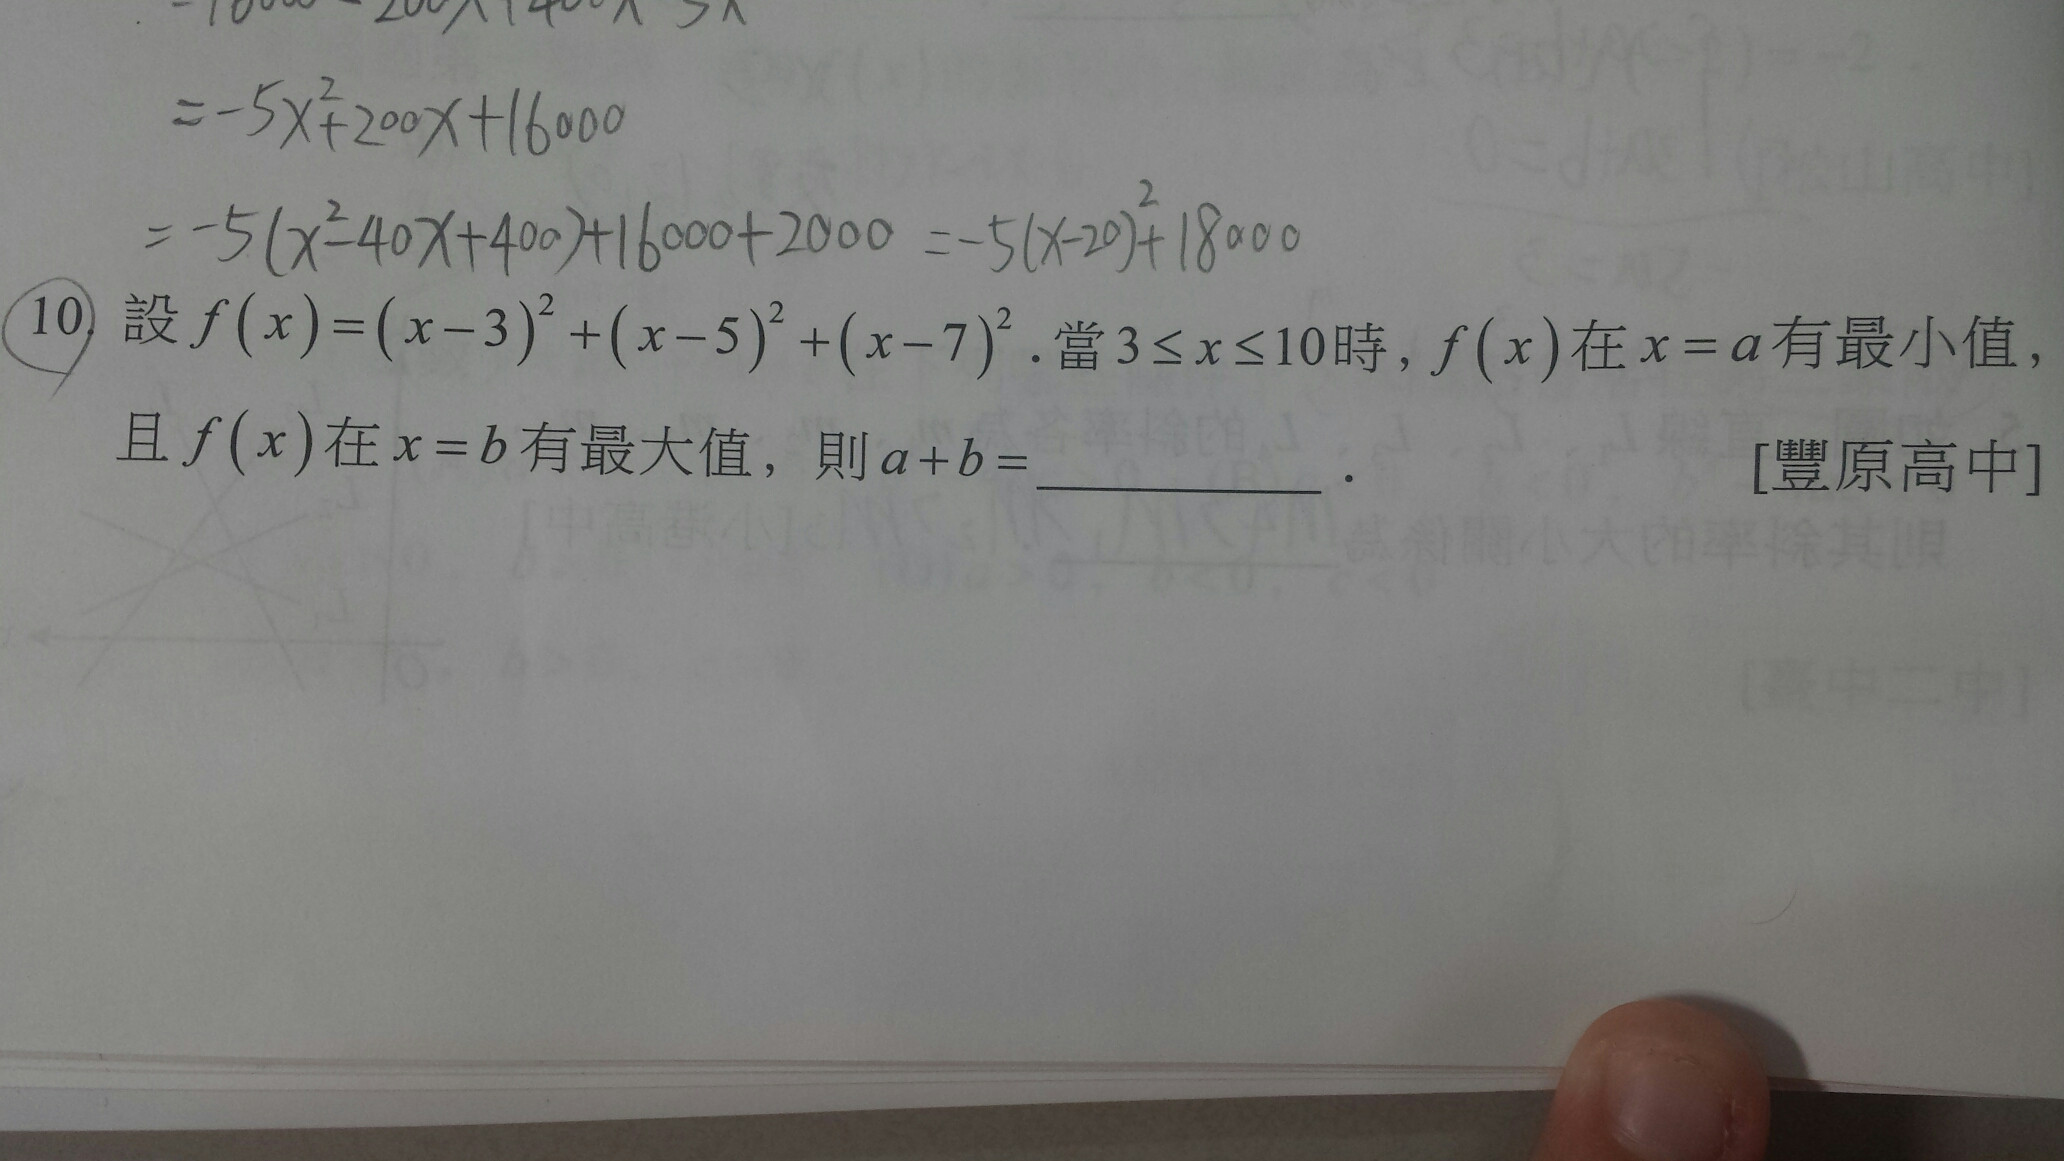 =-5x²+200x+16000
=-5(x²-40x+400)+16000+2000 =-5(x-20)²+18000
10. 設 f(x)=(x-3)²+(x-5)²+(x-7)². 當 3≤x≤10時, f(x)在 x=a有最小值,
且 f(x)在 x=b 有最大值, 則 a+b=__________. [豐原高中]